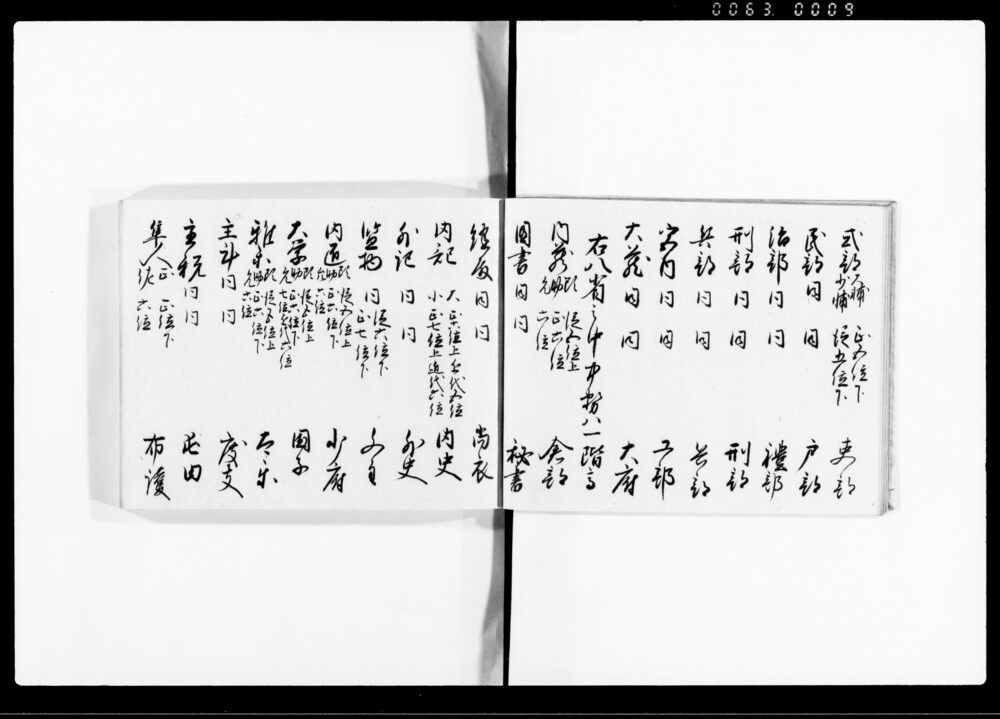 0063 0009
式部大輔 正五位下 吏部
少輔 従五位下
民部 同 同 戸部
治部 同 同 禮部
刑部 同 同 刑部
兵部 同 同 兵部
宮内 同 同 工部
大蔵 同 同 大府
右八省之中中務ハ一階高
内蔵頭 従五位上 倉部
助 正六位下
允 六位
図書 同 同 秘書
縫殿 同 同 尚衣
内記 大 正六位上 近代五位 内史
小 正七位上 近代六位
外記 同 同 外史
監物 同 従六位下
同 正七位下
内匠頭 従五位上 少府
助 正六位下
允 六位
大学頭 従五位上 国子
助 正六位下
允 七位近代六位
雅楽頭 従五位上 大楽
助 正六位下
允 六位
主計 同 同 度支
主税 同 同
隼人正 正六位下 布護
佑 六位